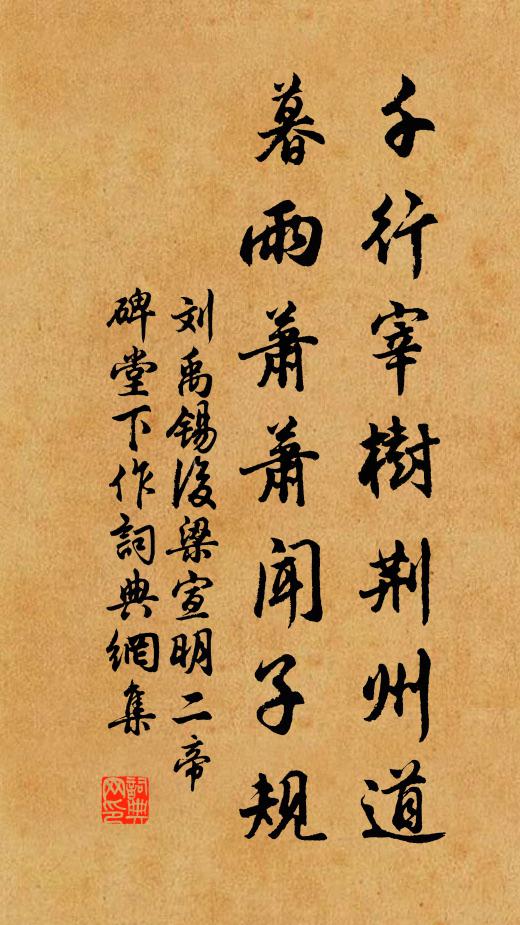 千行宰樹荆州道
暮雨蕭蕭聞子規
刘禹锡後梁宣明二帝
碑堂下作詞典網集
詞典网印